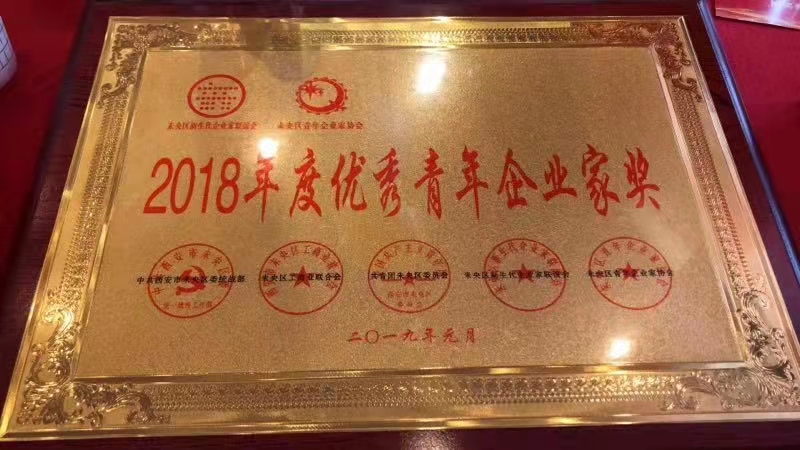 未央区新生代企业家联谊会 未央区青年企业家协会
2018年度优秀青年企业家奖
中共西安市未央区委统战部 未央区工商业联合会 共青团未央区委员会 未央区新生代企业家联谊会 未央区青年企业家协会
二〇一九年元月